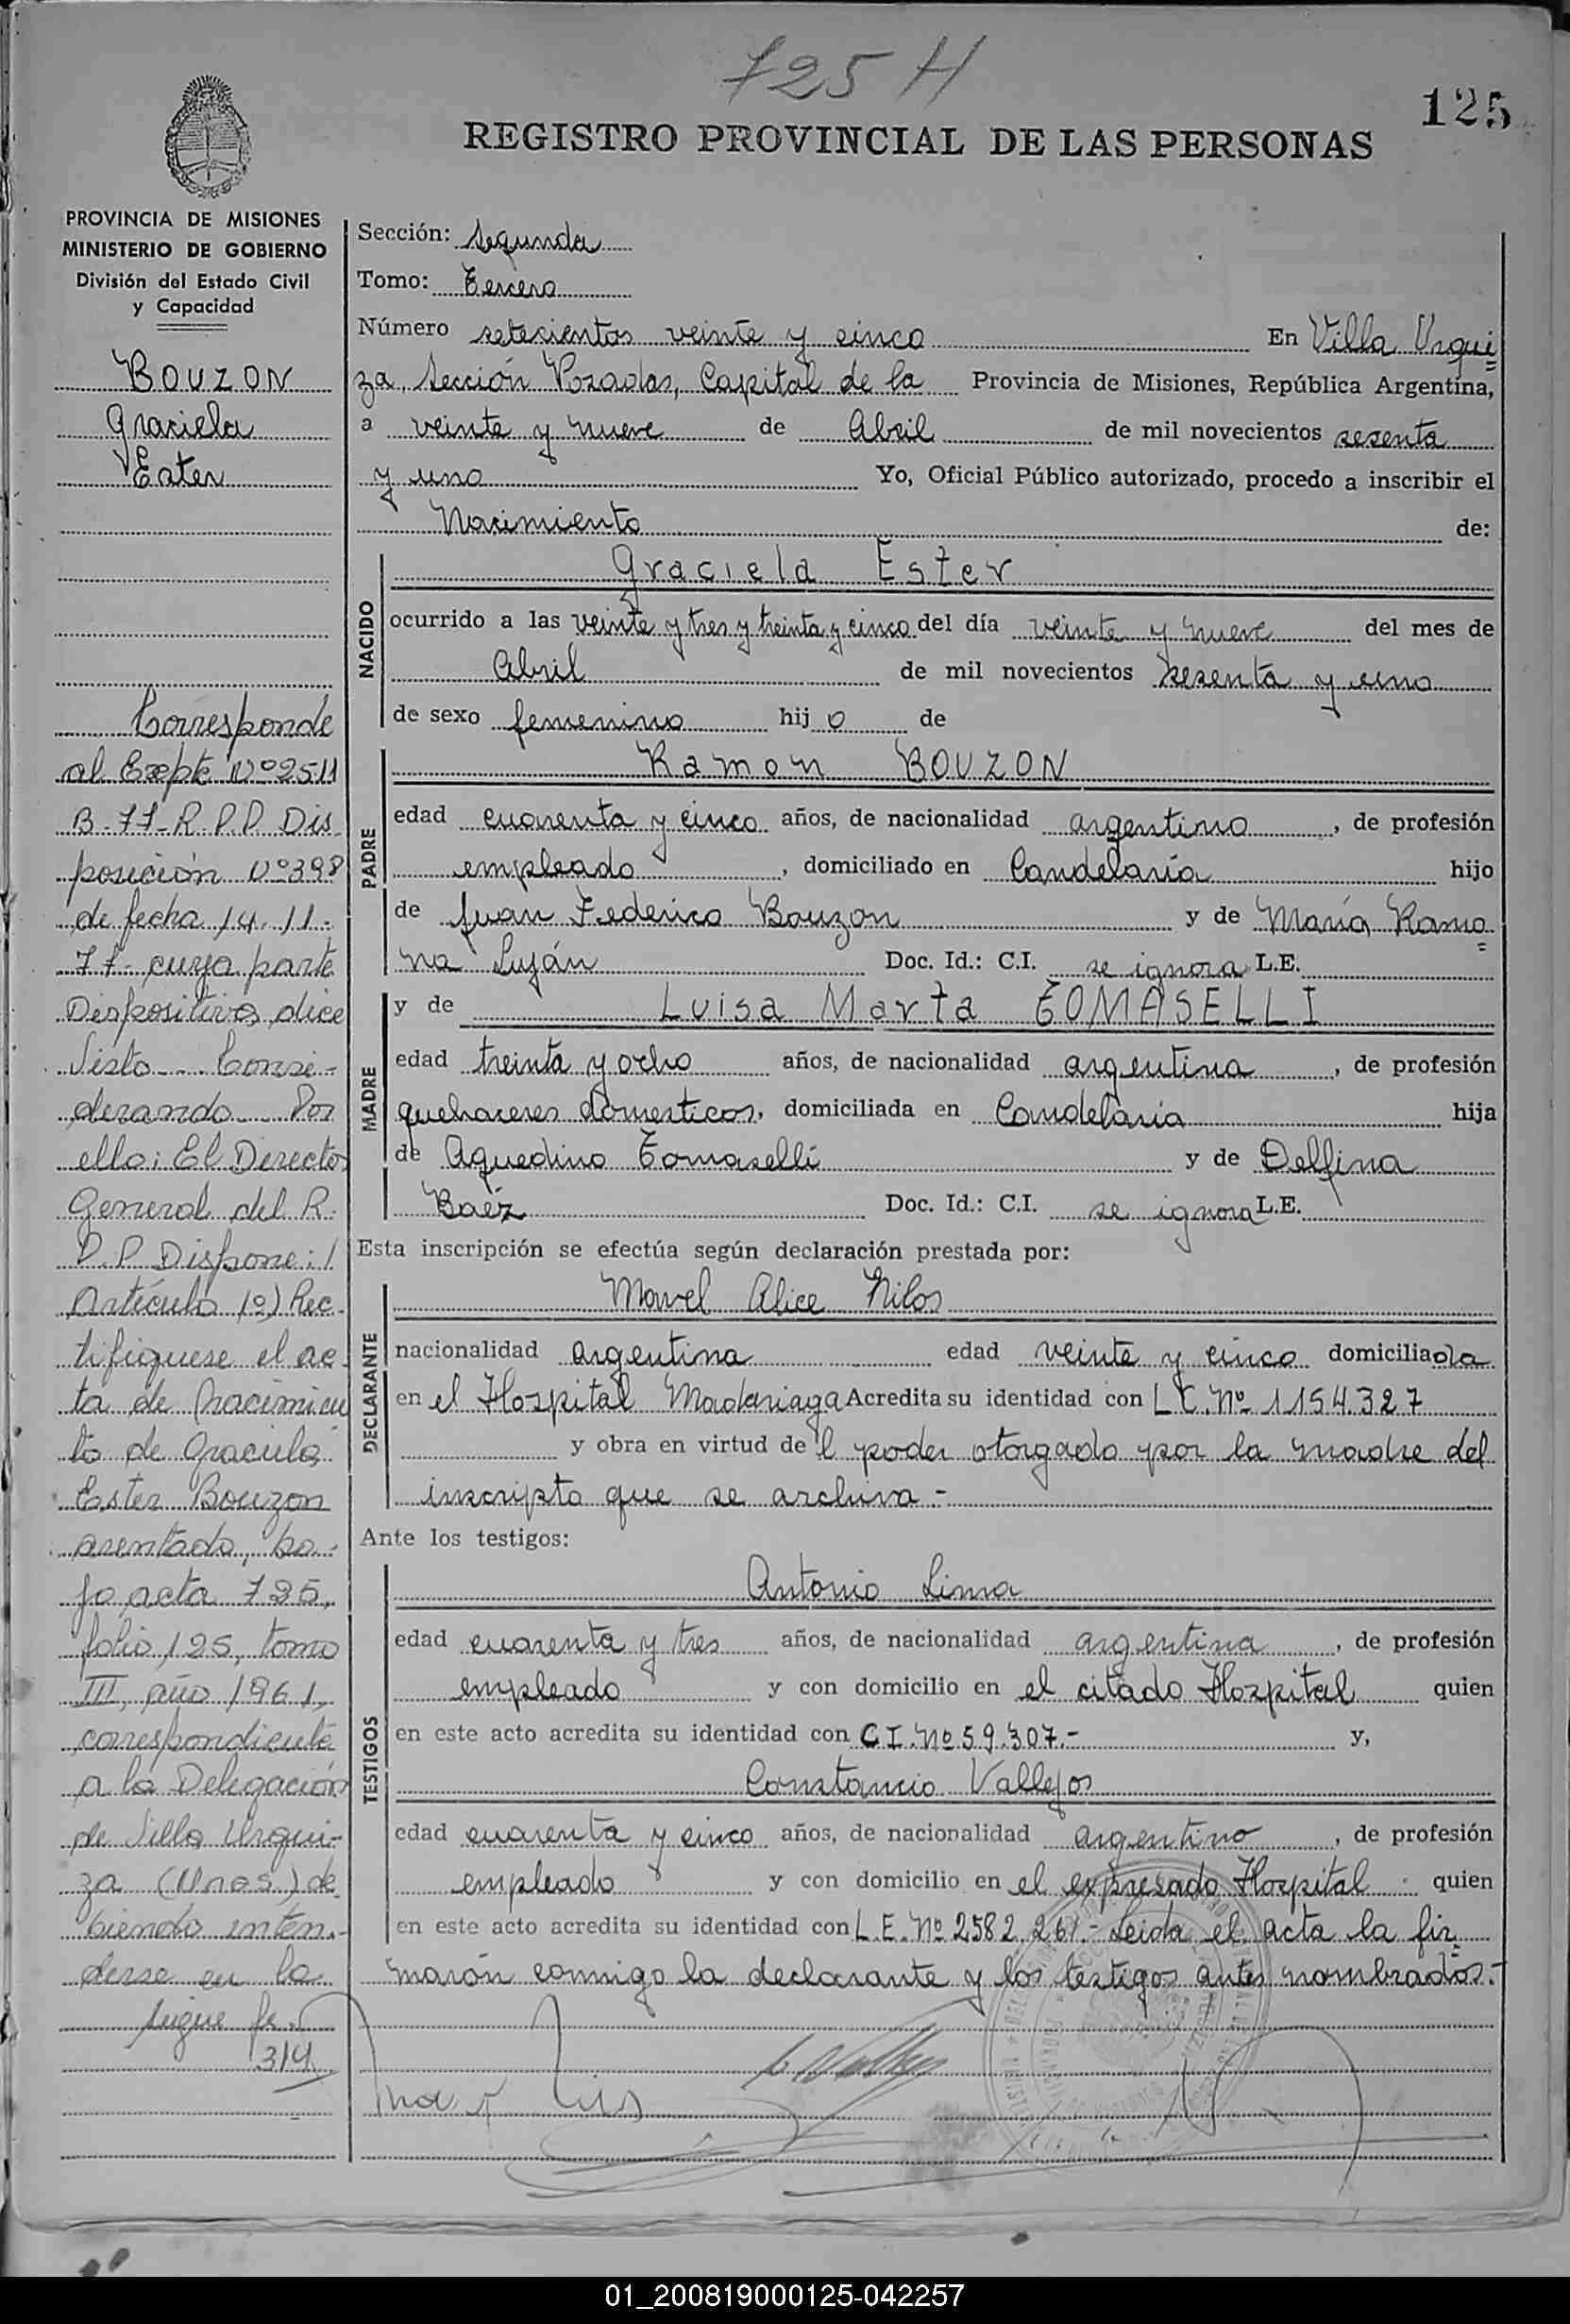 725 H
125
REGISTRO PROVINCIAL DE LAS PERSONAS
PROVINCIA DE MISIONES
MINISTERIO DE GOBIERNO
División del Estado Civil
y Capacidad
BOUZON
Graciela
Ester
Corresponde
al Expte Nº 2511
B-77-R.P.P. Dis
posición Nº 398
de fecha 14.11.
77- cuya parte
Dispositiva dice
Visto - - Consi-
derando - Por
ello: El Director
General del R.
P.P. Dispone: /
Artículo 1º) Rec-
tifiquese el ac-
ta de nacimien
to de Graciela
Ester Bouzon
asentado, ba-
jo acta 725,
folio 125, tomo
III, año 1961,
correspondiente
a la Delegación
de Villa Urqui-
za (Mnes.) de
biendo enten-
derse en la
sigue fs.
314
Sección: Segunda
Tomo: Tercero
Número setecientos veinte y cinco En Villa Urqui
za, Sección Posadas, Capital de la Provincia de Misiones, República Argentina,
a veinte y nueve de Abril de mil novecientos sesenta
y uno Yo, Oficial Público autorizado, procedo a inscribir el
Nacimiento de:
NACIDO
Graciela Ester
ocurrido a las veinte y tres y treinta y cinco del día veinte y nueve del mes de
Abril de mil novecientos sesenta y uno
de sexo femenino hij o de
PADRE
Ramon BOUZON
edad cuarenta y cinco años, de nacionalidad argentino, de profesión
empleado, domiciliado en Candelaria hijo
de Juan Federico Bouzon y de María Ramo
na Luján Doc. Id.: C.I. se ignora L.E.
MADRE
y de Luisa Marta TOMASELLI
edad treinta y ocho años, de nacionalidad argentina, de profesión
quehaceres domesticos, domiciliada en Candelaria hija
de Aguedino Tomaselli y de Delfina
Baéz Doc. Id.: C.I. se ignora L.E.
Esta inscripción se efectúa según declaración prestada por:
DECLARANTE
Mavel Alice Nilos
nacionalidad argentina edad veinte y cinco domiciliada
en el Hospital Madariaga Acredita su identidad con L C. Nº 1154.327
y obra en virtud de l poder otorgado por la madre del
inscripto que se archiva.-
Ante los testigos:
TESTIGOS
Antonio Lima
edad cuarenta y tres años, de nacionalidad argentina, de profesión
empleado y con domicilio en el citado Hospital quien
en este acto acredita su identidad con C I. Nº 59.307.- y,
Constancio Vallejos
edad cuarenta y cinco años, de nacionalidad argentino, de profesión
empleado y con domicilio en el expresado Hospital quien
en este acto acredita su identidad con L.E. Nº 2582.261.- Leida el acta la fir
marón conmigo la declarante y los testigos antes nombrados.-
01_200819000125-042257